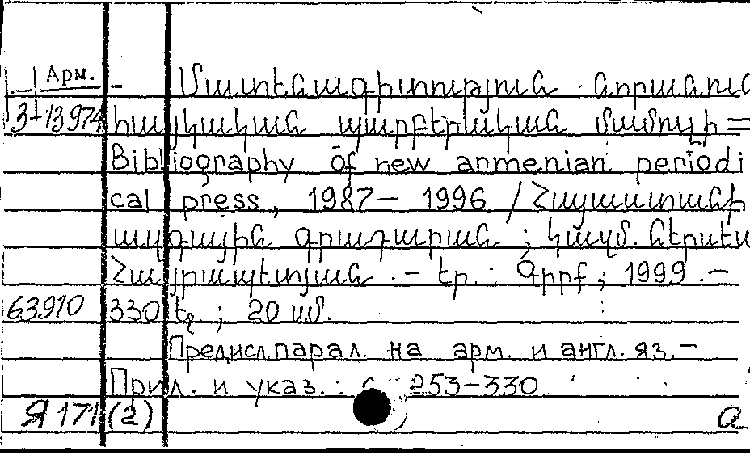 Арм. Մատենագիտություն նորանուն
3-13974 հայկական պարբերական մամուլի =
Bibliography of new armenian periodi
cal press, 1987- 1996 / Հայաստանի
ազգային գրադարան ; կազմ. Ներսես
Հայրապետյան .- Եր. : Գրքբ ; 1999 .-
63.910 330 էջ ; 20 սմ.
Предисл. парал. на арм. и англ. яз.-
Прил. и указ.: с. 253-330
Я 171 (2) а